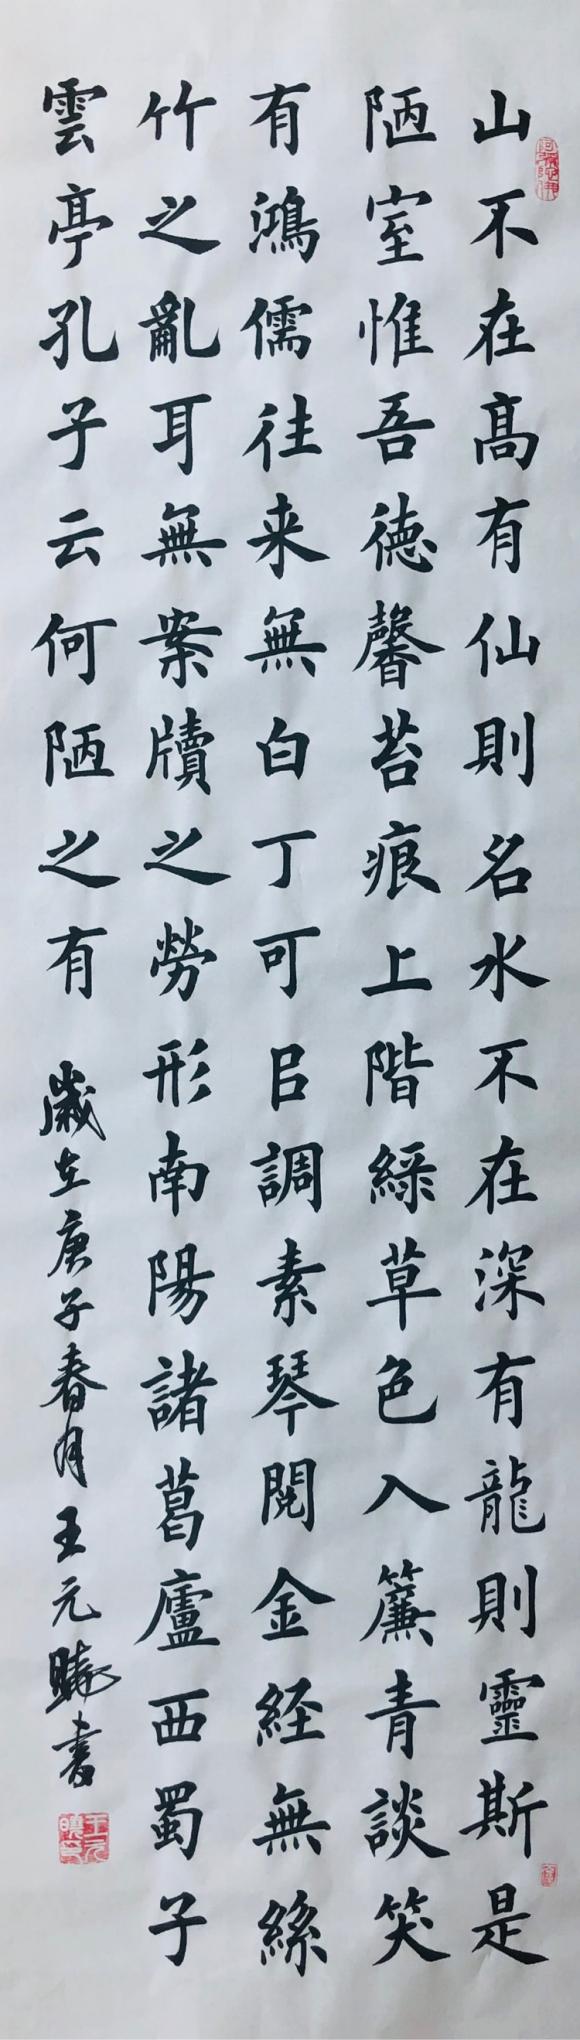 山不在高有仙則名水不在深有龍則靈斯是
陋室惟吾德馨苔痕上階緑草色入簾青談笑
有鴻儒往来無白丁可㠯調素琴閱金経無絲
竹之亂耳無案牘之勞形南陽諸葛廬西蜀子
雲亭孔子云何陋之有
歲在庚子春月王元曉書